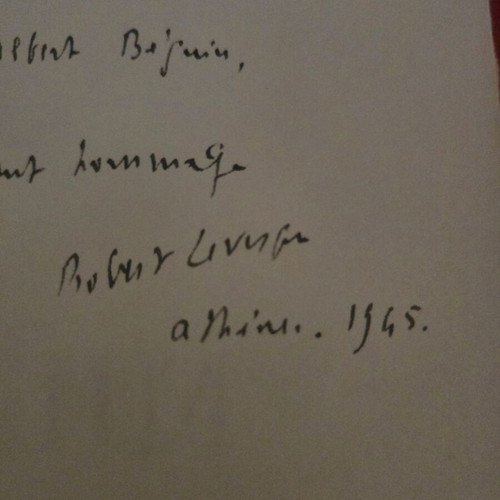 Albert Béguin,
hommage
Robert Levesque
Athènes. 1945.